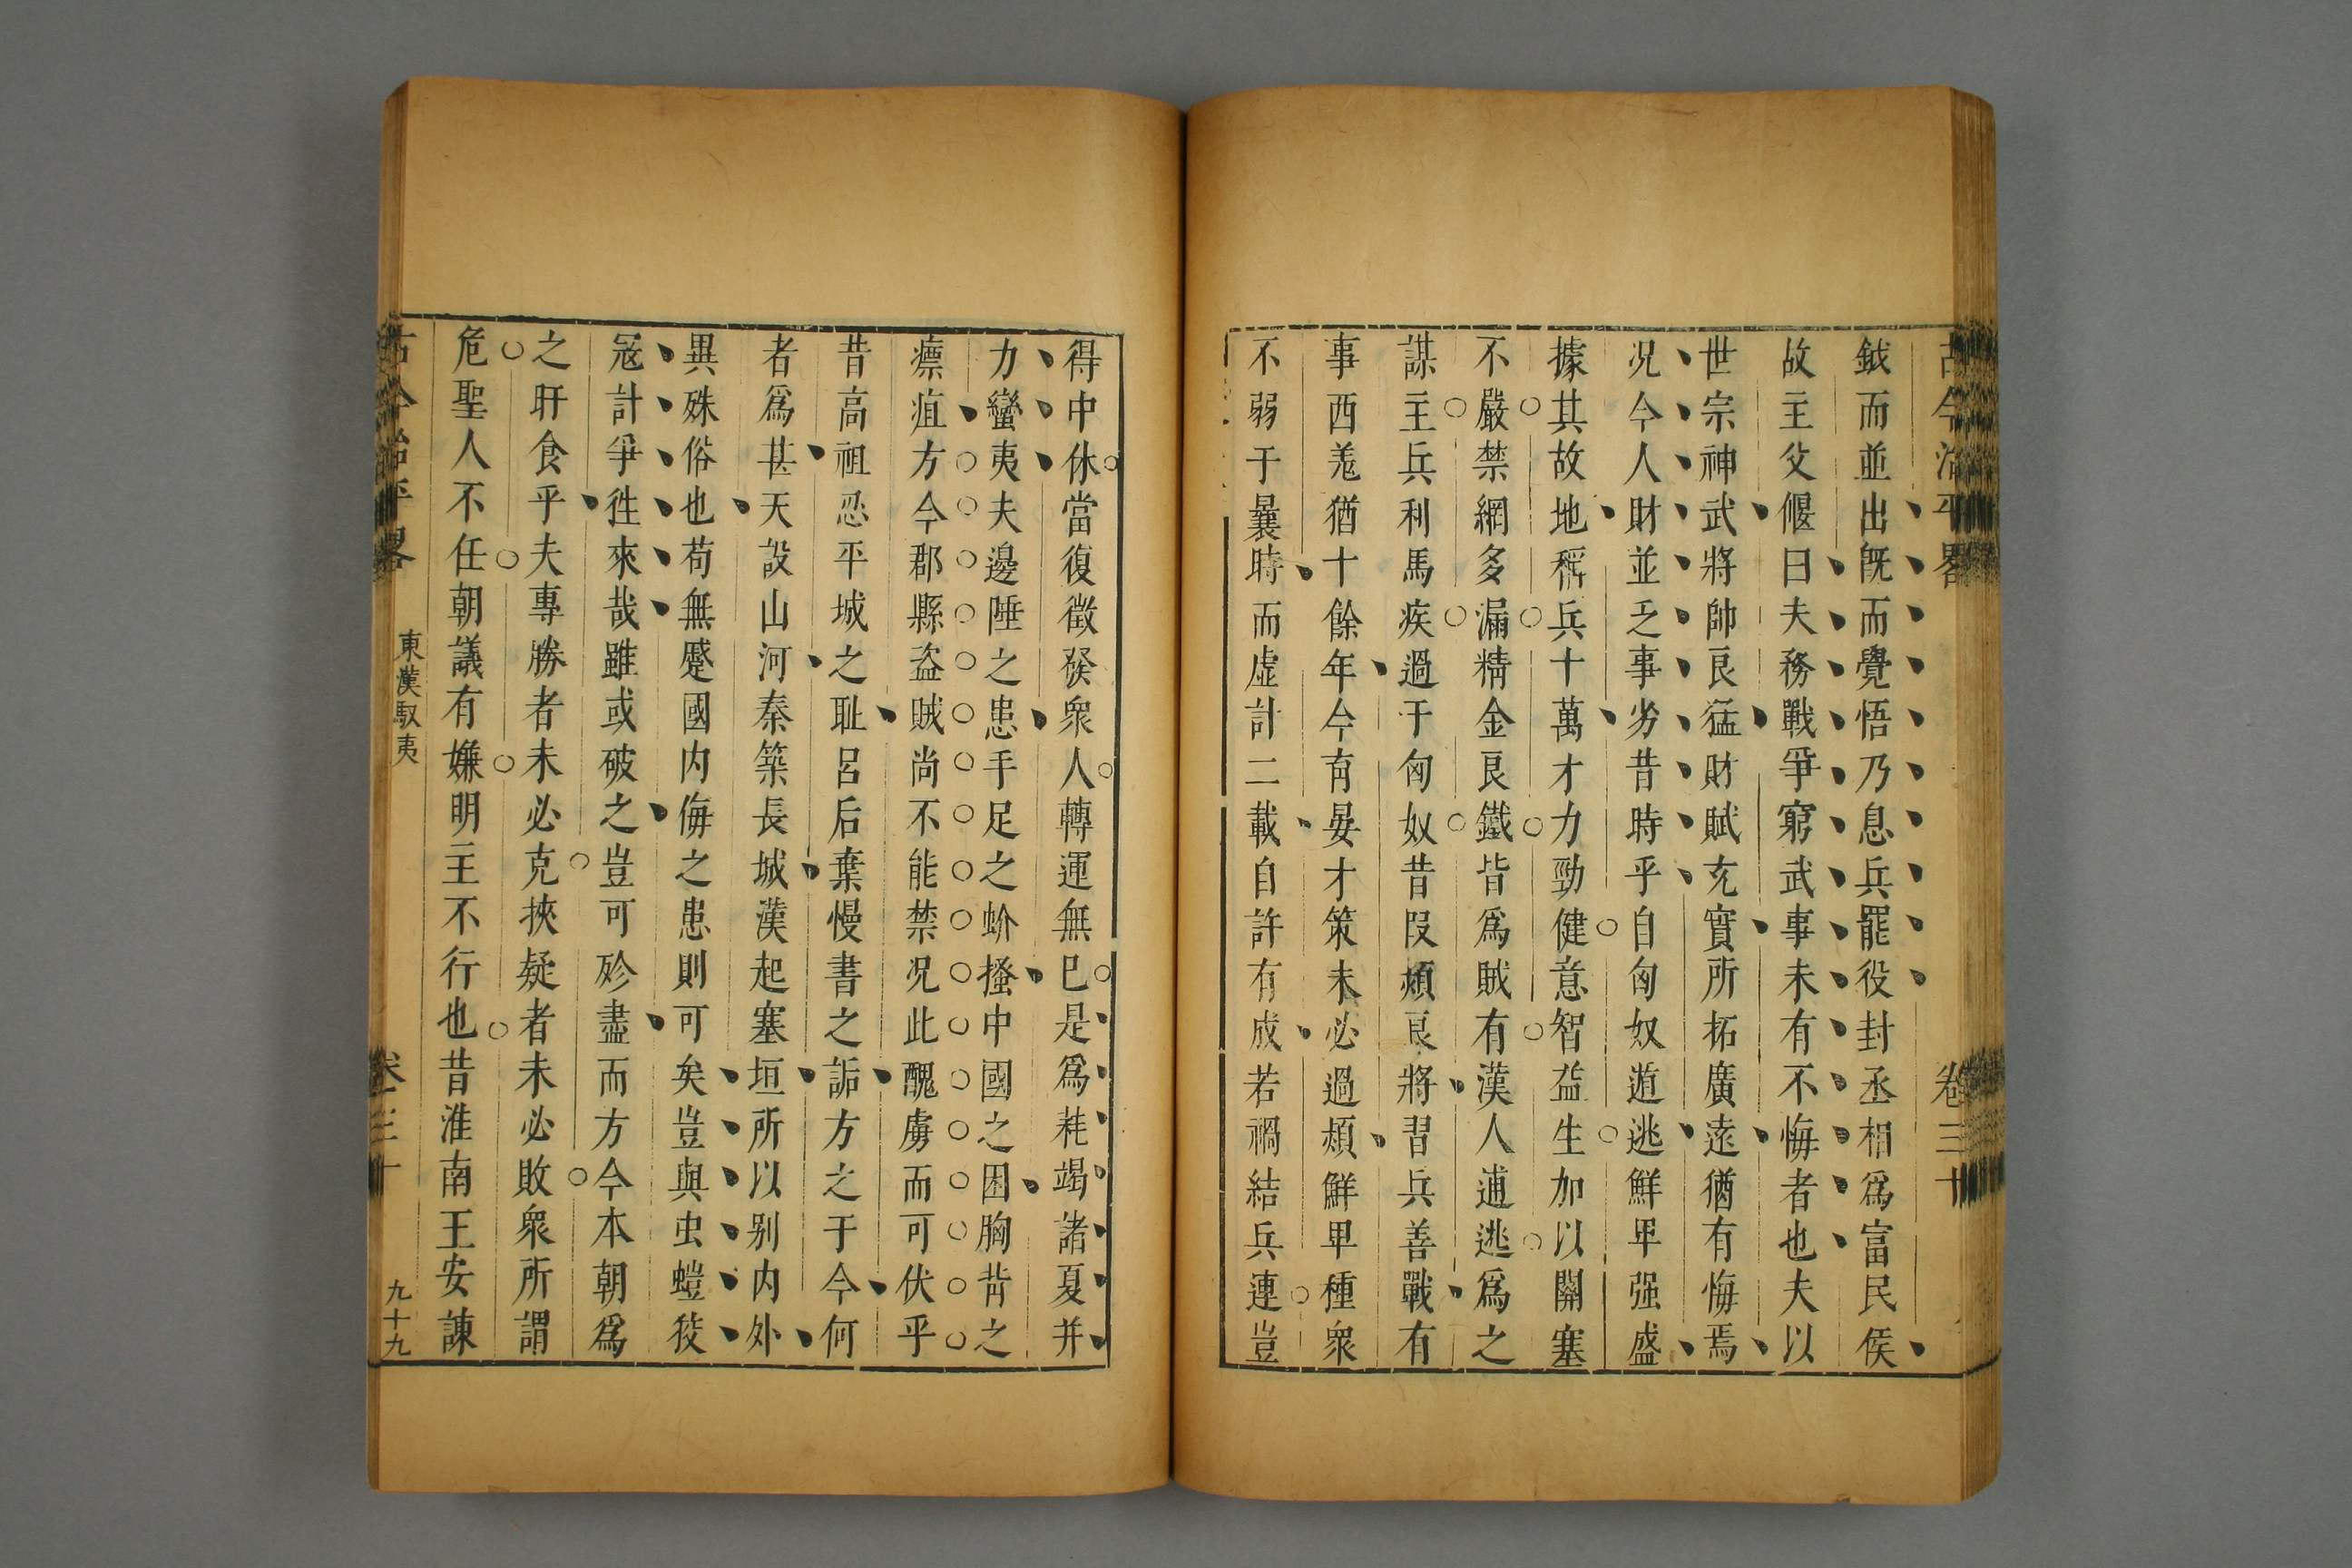 古今治平畧
卷三十
鉞而並出旣而覺悟乃息兵罷役封丞相爲富民侯
故主父偃曰夫務戰爭窮武事未有不悔者也夫以
世宗神武將帥良猛財賦充實所拓廣遠猶有悔焉
况今人財並乏事劣昔時乎自匈奴遁逃鮮卑强盛
據其故地稱兵十萬才力勁健意智益生加以關塞
不嚴禁網多漏精金良鐵皆爲賊有漢人逋逃爲之
謀主兵利馬疾過于匈奴昔段熲良將習兵善戰有
事西羌猶十餘年今育晏才策未必過熲鮮卑種衆
不弱于曩時而虛計二載自許有成若禍結兵連豈
得中休當復徵發衆人轉運無已是爲耗竭諸夏并
力蠻夷夫邊陲之患手足之蚧搔中國之困胸背之
瘭疽方今郡縣盜賊尚不能禁况此醜虜而可伏乎
昔高祖忍平城之耻呂后棄慢書之詬方之于今何
者爲甚天設山河秦築長城漢起塞垣所以别内外
異殊俗也苟無蹙國内侮之患則可矣豈與虫螘狡
冦計爭徃來哉雖或破之豈可殄盡而方今本朝爲
之旰食乎夫專勝者未必克挾疑者未必敗衆所謂
危聖人不任朝議有嫌明主不行也昔淮南王安諫
古今治平畧
東漢馭夷
卷三十
九十九